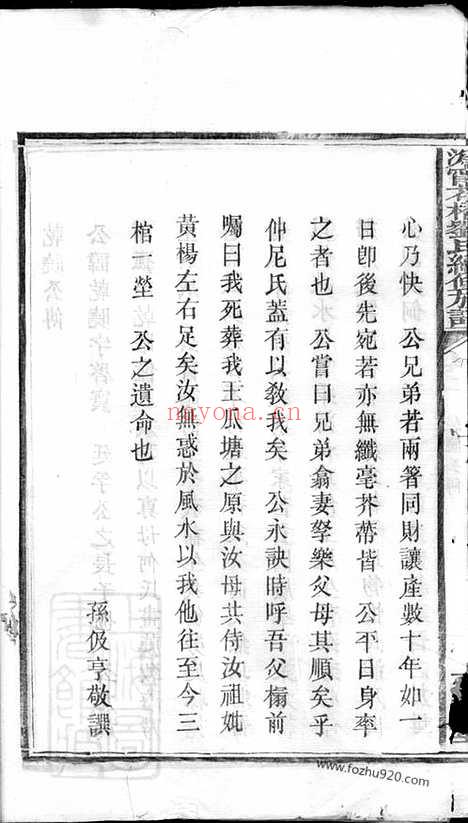 心乃快　公兄弟若兩箸同財讓產數十年如一
日卽後先宛若亦無纖毫芥蔕皆　公平日身率
之者也　公嘗曰兄弟翕妻孥樂父母其順矣乎
仲尼氏蓋有以敎我矣　公永訣時呼吾父榻前
囑曰我死葬我王瓜塘之原與汝母共侍汝祖妣
黃楊左右足矣汝無惑於風水以我他往至今三
棺一塋　公之遺命也
孫伋亨敬譔
nayona.cn
www.fozhu920.com